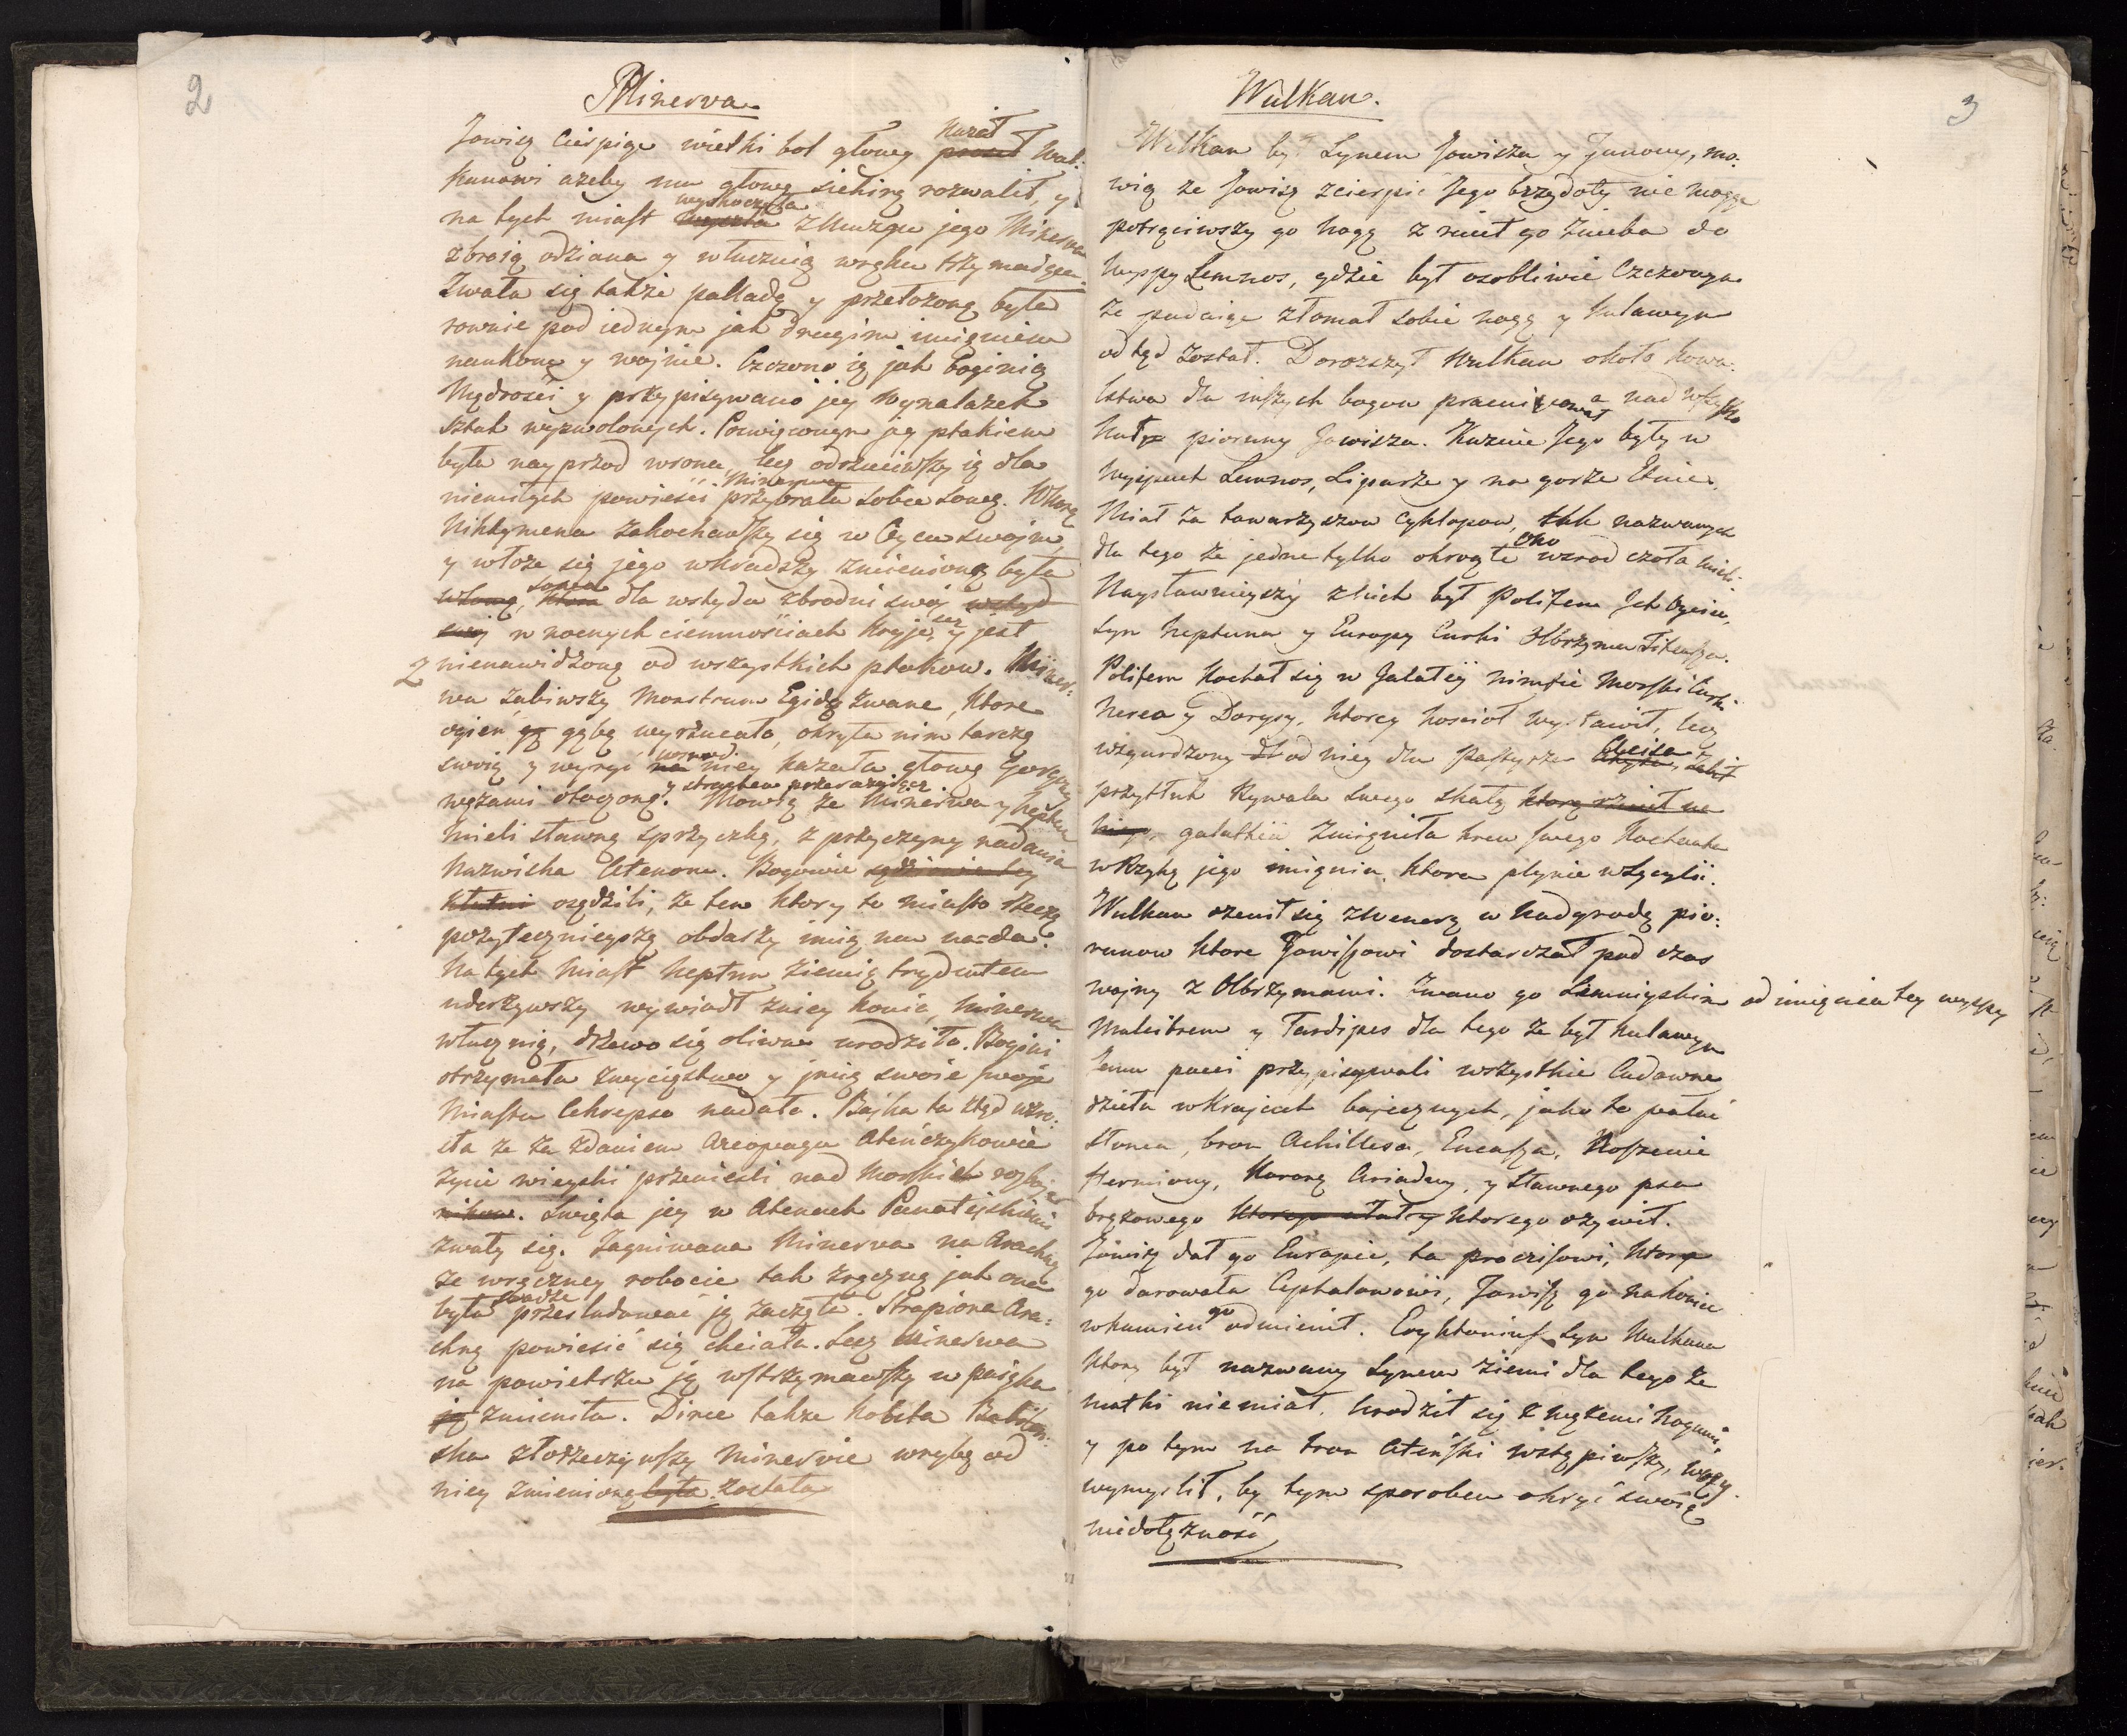 2
Minerva.
Jowisz cierpiąc wielki bol głowy kazał prosił Wul:
kanowi ażeby mu głowę siekirą rozwalił, y
na tych miast wyskoczyła wyszła z Muzgu jego Minerwa
zbroią odziana y włucznią wręku trzymaiące.
Zwała się także palladą y przełożoną była
rownie pod iednym jak drugim imieniem
naukom y wojnie. Czczono ią jak Boginią
Mądrości y przypisywano jey wynalazek
sztuk wyzwolonych. Poswięconym jey ptakiem
była nayprzod wrona, lecz odrzuciwszy ią dla
niemiłych powieści Minerwa przybrała sobie sowę.
Niktymena zakochawszy się w Oycu swojm
y włoże się jego wkradszy zmienioną była
w sowę, Sowa ktora dla wstydu zbrodni swój wstyd
swój w nocnych ciemnościach kryje się, y jest
2 nienawidzoną od wszystkich ptakow. Miner:
wa zabiwszy Monstrum Egidą zwane, ktore
ogień gębą wyrzucało, okryła nim tarczę
swoią y wyryć na posrod niey kazała głowę Gorgony
wężami otoczoną. y strachem przerażaiącą Mowią że Minerwa y Neptun
mieli sławną sprzyczkę, z przyczyny nadania
Nazwiska Atenom. Bogowie sędziowie tey
kłutni osądzili, że ten ktory to miasto rzeczą
pożytecznieyszą obdarzy imię mu nada.
Na tych miast Neptun ziemię trydentem
uderzywszy wywiodł zniey konie, Minerwa
włucznią, drzewo się oliwne urodziło. Bogini
otrzymała zwycięstwo y jmię swoie swoje
Miastu Cekropsa nadała. Bajka ta ztąd wzro:
sła że za zdaniem Areopagu Ateńczykowie
życie wieyski przenieśli nad Morskich rozbyj
nikow. Swięta jey w Atenach Panateyskiemi
zwały się. Zagniwana Minerwa na Arachnę
że wręczney robocie tak zręczną jak ona
była srodze przesladować ją zaczęła. Strapiona Ara:
chną powiesić się chciała. Lecz Minerwa
na powietrzu ją wstrzymawszy w paięka
ją zmieniła. Dirce także kobita Babilon:
ska złorzeczywszy Minerwie wrybę od
niey zmienioną była została
3
Wulkan.
Wulkan był Synem Jowisza y Junony, mo:
wią że Jowisz zcierpić Jego brzydoty nie mogąc
potrąciwszy go nogą zrucił go znieba do
Wyspy Lemnos, gdzie był osobliwie Czczonym
że padaiąc złomał sobie nogę y kulawym
odtąd został. Dorożczył Wulkan około kowa:
lstwa dla inszych bogow pracował a nad wszystko
kuł pioruny Jowisza. Kuznie Jego były w
Wyspach Lemnos, Liparze y na gorze Etnie.
Miał za towarzyszow Cyklopow, tak nazwanych
dla tego że jedne tylko okrągłe Oko wsrod czoła mieli.
Naysławnieyszy z nich był Polifem Jch Oyciec,
syn Neptuna y Europy Curki Olbrzyma Titeusza.
Polifem kochał się w Galateij nimfie Morski Curki
Nerea y Dorysy, ktorey koscioł wystawił, lecz
wzgardzony dl od niey dla Pastyrza Aceisa, zabił
przytłuk Rywala swego skałą ktorą rzucił na
niego, galathea zmieniła krew swego Kochanka
w Rzykę jego imienia, ktora płynie w Sycylii.
Wulkan ożenił się z Wenerą w Nadgrodę pio:
runow ktore Jowiszowi dostarczał pod czas
wojny z Olbrzymami. Zwano go Lemniyskim od imienia tey wyspy
Mulcibrem y Tardipes dla tego że był kulawym
Jemu poeci przypisywali wszystkie Cudowne
dzieła w Krajach bajecznych, jako to pałac
słonca, bron Achillesa, Eneasza, Noszenie
Hermiony, Koronę Ariadny, y sławnego psa
brązowego ktorego ożywił.
Jowisz dał go Europie, ta procrisowi, ktora
go darowała Cephalowowi, Jowisz go nakoniec
wkamień go odmienił. Eryktonius syn Wulkana
ktory był nazwany Synem ziemi dla tego że
matki niemiał, Urodził się z wężemi Nogami,
y po tym na tron Ateński wstąpiwszy, wozy
wymyslił, by tym sposobem okryć swoię
niedołężność